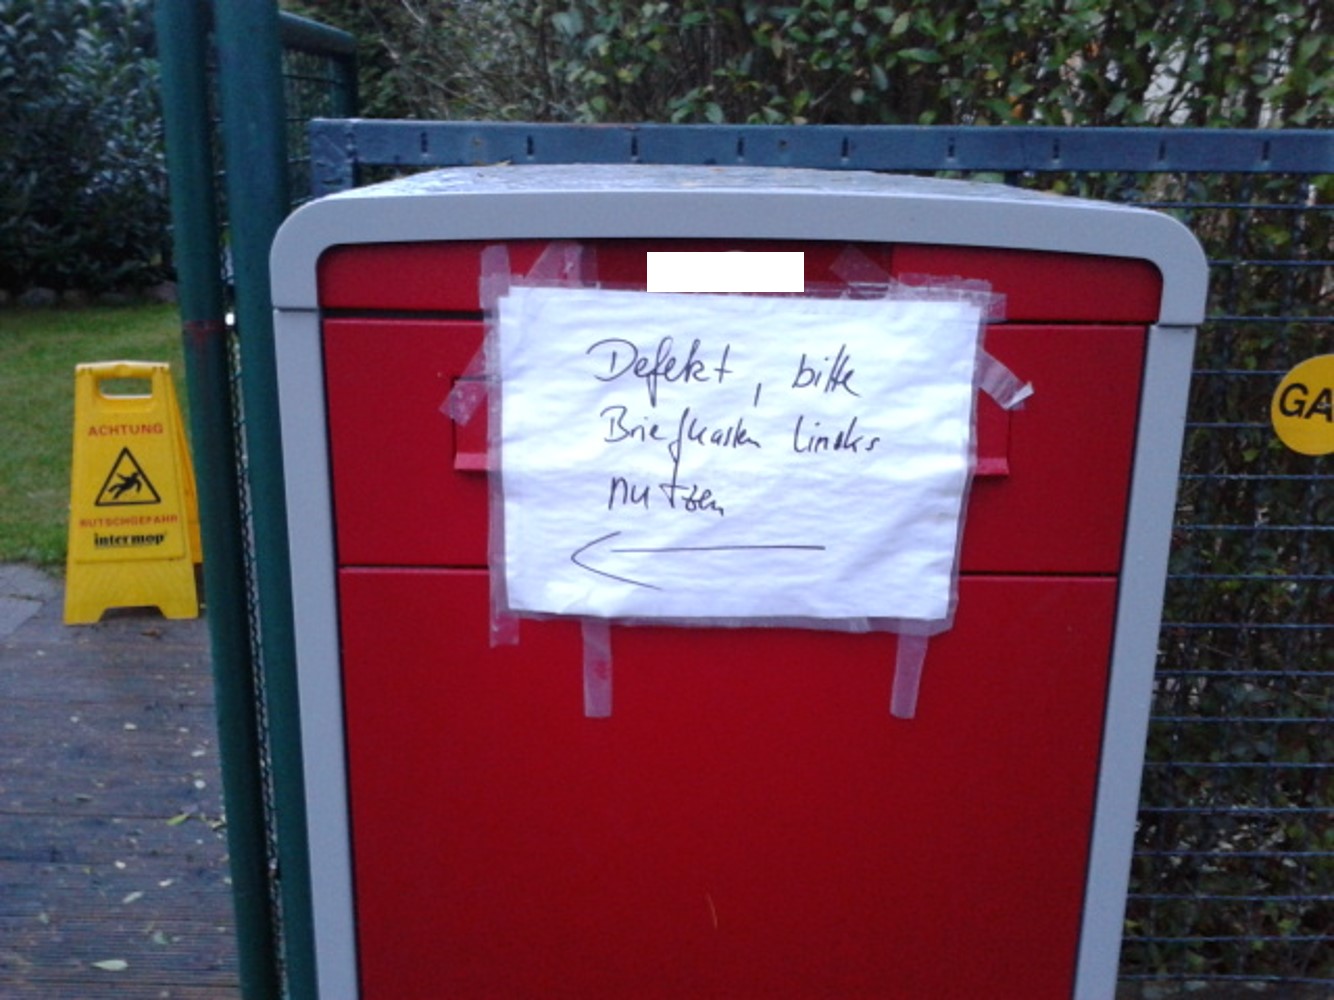 Defekt, bitte
Briefkasten lincks
nutzen
ACHTUNG
RUTSCHGEFAHR
intermop
GA